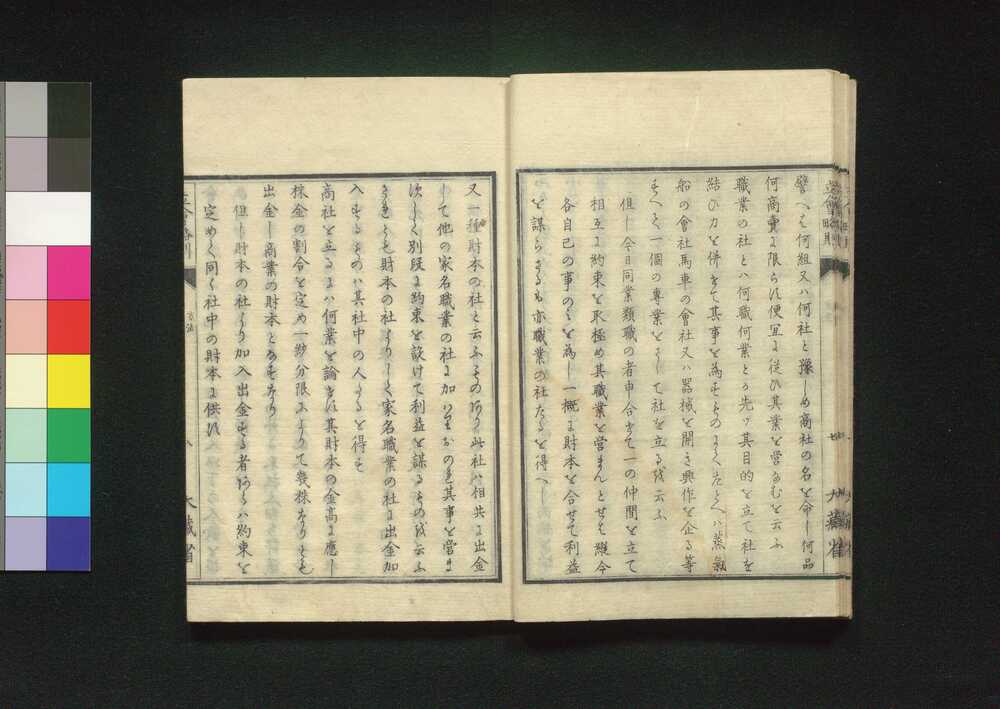 譬へば何組又ハ何社と豫しめ商社の名を命し何品
何商賣に限らす便宜に從ひ其業を營なむを云ふ
職業の社とハ何職何業とか先ツ其目的を立て社を
結ひ力を併せて其事を為すものにてたとへハ蒸氣
船の會社馬車の會社又ハ器械を開き興作を企る等
すへて一個の專業をもつて社を立るを云ふ
但し今日同業類職の者申合せて一の仲間を立て
相互に約束を取極め其職業を營まんとせは縱令
各自己の事のみを為し一概に財本を合せて利益
を謀らさるも亦職業の社たるを得へし
又一種財本の社と云ふものあり此社ハ相共に出金
して他の家名職業の社に加ハりおのれ其事を營ま
すしく別段に約束を設けて利益を謀るものを云ふ
されとも財本の社よりして家名職業の社に出金加
入するものハ其社中の人たるを得す
商社を立るにハ何業を論せす其財本の金高に應し
株金の割合を定め一紛分限によりて幾株なりとも
出金し商業の財本となすなり
但し財本の社より加入出金する者あらハ約束を
定めて同く社中の財本に供す
立會略則
方法
八
大藏省